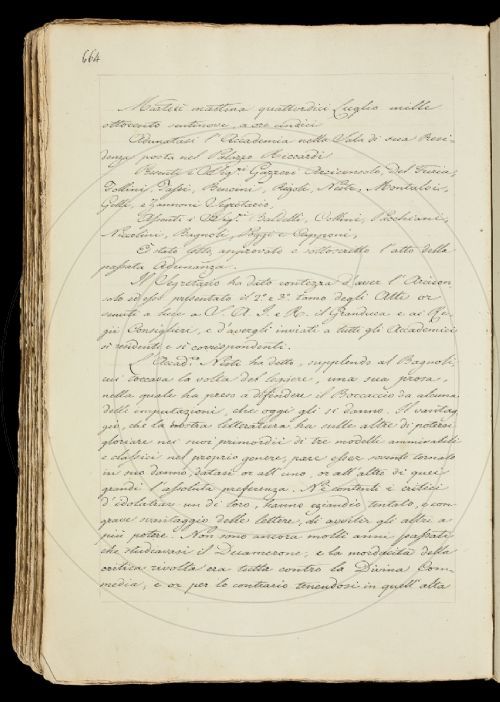 664
Martedì mattina quattordici Luglio mille
ottocento ventinove, a ore undici
Adunatasi l'Accademia nella Sala di sua Resi-
denza posta nel Palazzo Riccardi
Presenti i Sigri Gazzeri Arciconsolo, Del Furia,
Follini, Tassi, Bencini, Rigoli, Nesti, Montalvi,
e Zannoni Segretario,
Assenti i Sigri Baldelli, Collini, Pacchiani,
Niccolini, Bagnoli, Poggi e Capponi,
È stato letto, approvato e sottoscritto l'atto della
passata Adunanza.
Il Segretario ha dato contezza d'aver l'Arcicon-
solo ed esso presentato il 2° e 3° tomo degli Atti or
venuti a luce a S. A. I. e R. il Granduca e ai Re-
gii Consiglieri, e d'avergli inviati a tutti gli Accademici
sì residenti e sì corrispondenti.
L'Accad.co Nesti ha detto, supplendo al Bagnoli,
cui toccava la volta del leggere, una sua prosa,
nella quale ha preso a difendere il Boccaccio da alcuna
delle imputazioni, che oggi gli si danno. Il vantag-
gio, che la nostra letteratura ha sulle altre di potersi
gloriare nei suoi primordii di tre modelli ammirabili
e classici nel proprio genere, pare esser sovente tornato
in suo danno, datasi or all'uno, or all'altro di quei
grandi l'assoluta preferenza. Nè contenti i critici
d'idolatrar un di loro, hanno eziandio tentato, e con
grave svantaggio delle lettere, di avvilir gli altri a
più potere. Non sono ancora molti anni passati
che studiavasi il Decamerone, e la mordacità della
critica rivolta era tutta contro la Divina Com-
media, e or per lo contrario tenendosi in quell'alta